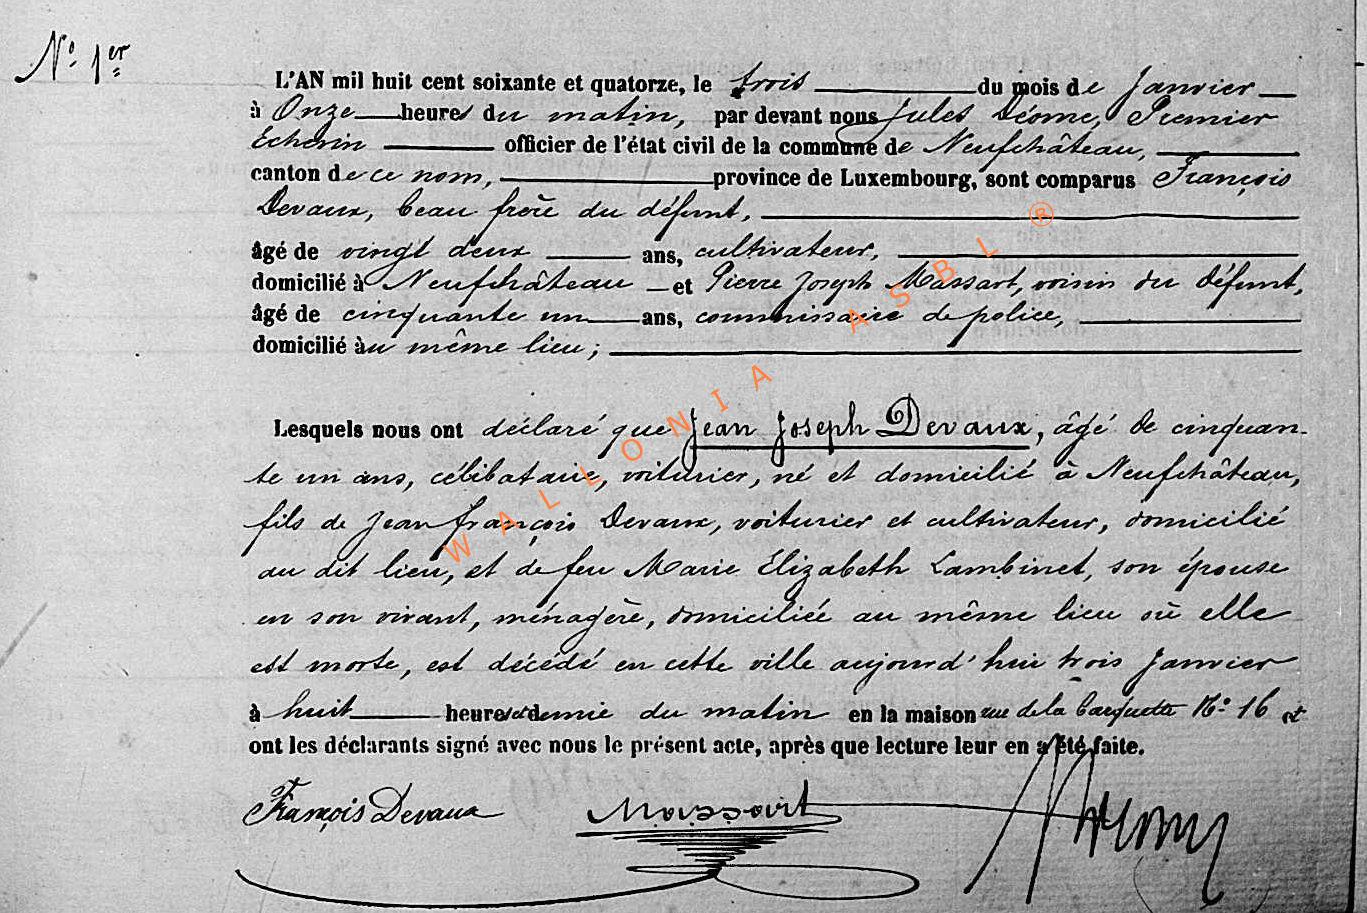 N° 1er
L'AN mil huit cent soixante et quatorze, le trois du mois de Janvier
à Onze heures du matin, par devant nous Jules Déome, Premier
Echevin officier de l'état civil de la commune de Neufchâteau,
canton de ce nom, province de Luxembourg, sont comparus François
Devaux, beau frère du défunt,
âgé de vingt deux ans, cultivateur,
domicilié à Neufchâteau et Pierre Joseph Massart, voisin du défunt,
âgé de cinquante un ans, commissaire de police,
domicilié au même lieu;
Lesquels nous ont déclaré que Jean Joseph Devaux, âgé de cinquan-
te un ans, célibataire, voiturier, né et domicilié à Neufchâteau,
fils de Jean françois Devaux, voiturier et cultivateur, domicilié
au dit lieu, et de feu Marie Elizabeth Lambinet, son épouse
en son vivant, ménagère, domiciliée au même lieu où elle
est morte, est décédé en cette ville aujourd'hui trois Janvier
à huit heures et demie du matin en la maison rue de la Carquette N° 16 et
ont les déclarants signé avec nous le présent acte, après que lecture leur en a été faite.
François Devaux Massart
WALLONIA ASBL ®